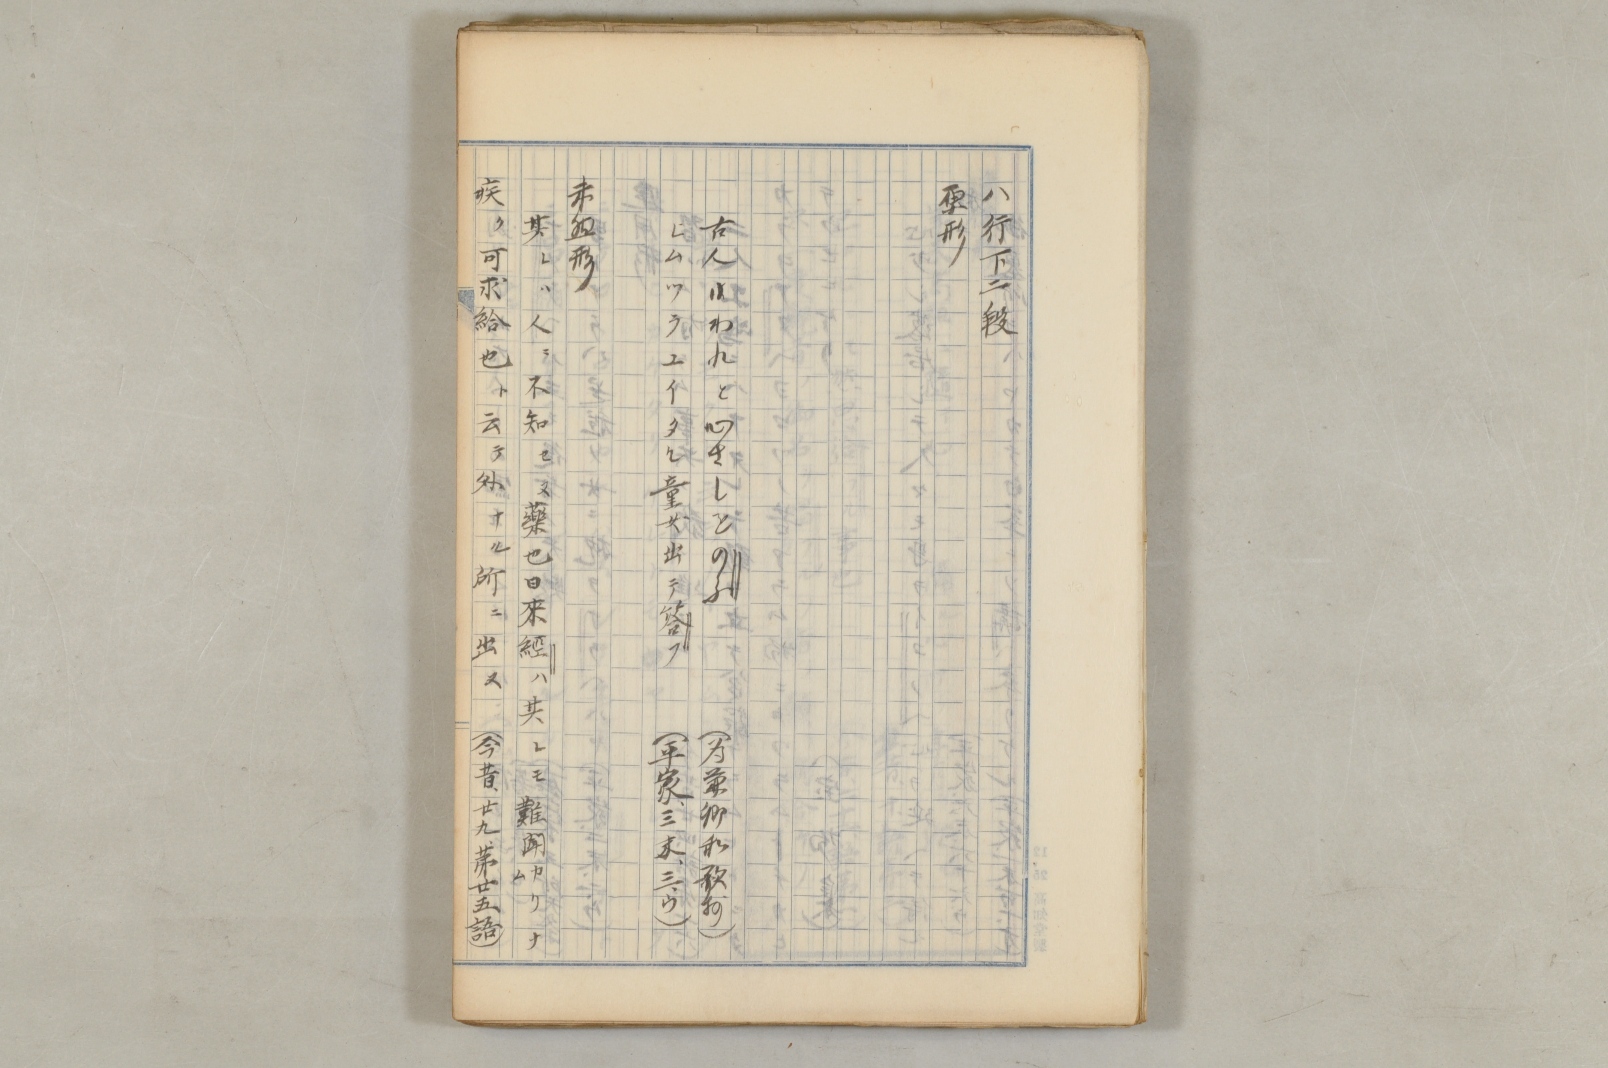 ハ行下二段
原形
古人はわれと心さしをのふ (為兼卿和歌抄)
ヒムツラユイタル童女出テ答フ (平家、三末、三ウ)
未然形
其レハ人ニ不知セヌ薬也日来經ハ其レモ難聞カリナム
疾ク可求給也ト云テ外ナル所ニ出ヌ (今昔、廿九、第廿五語)